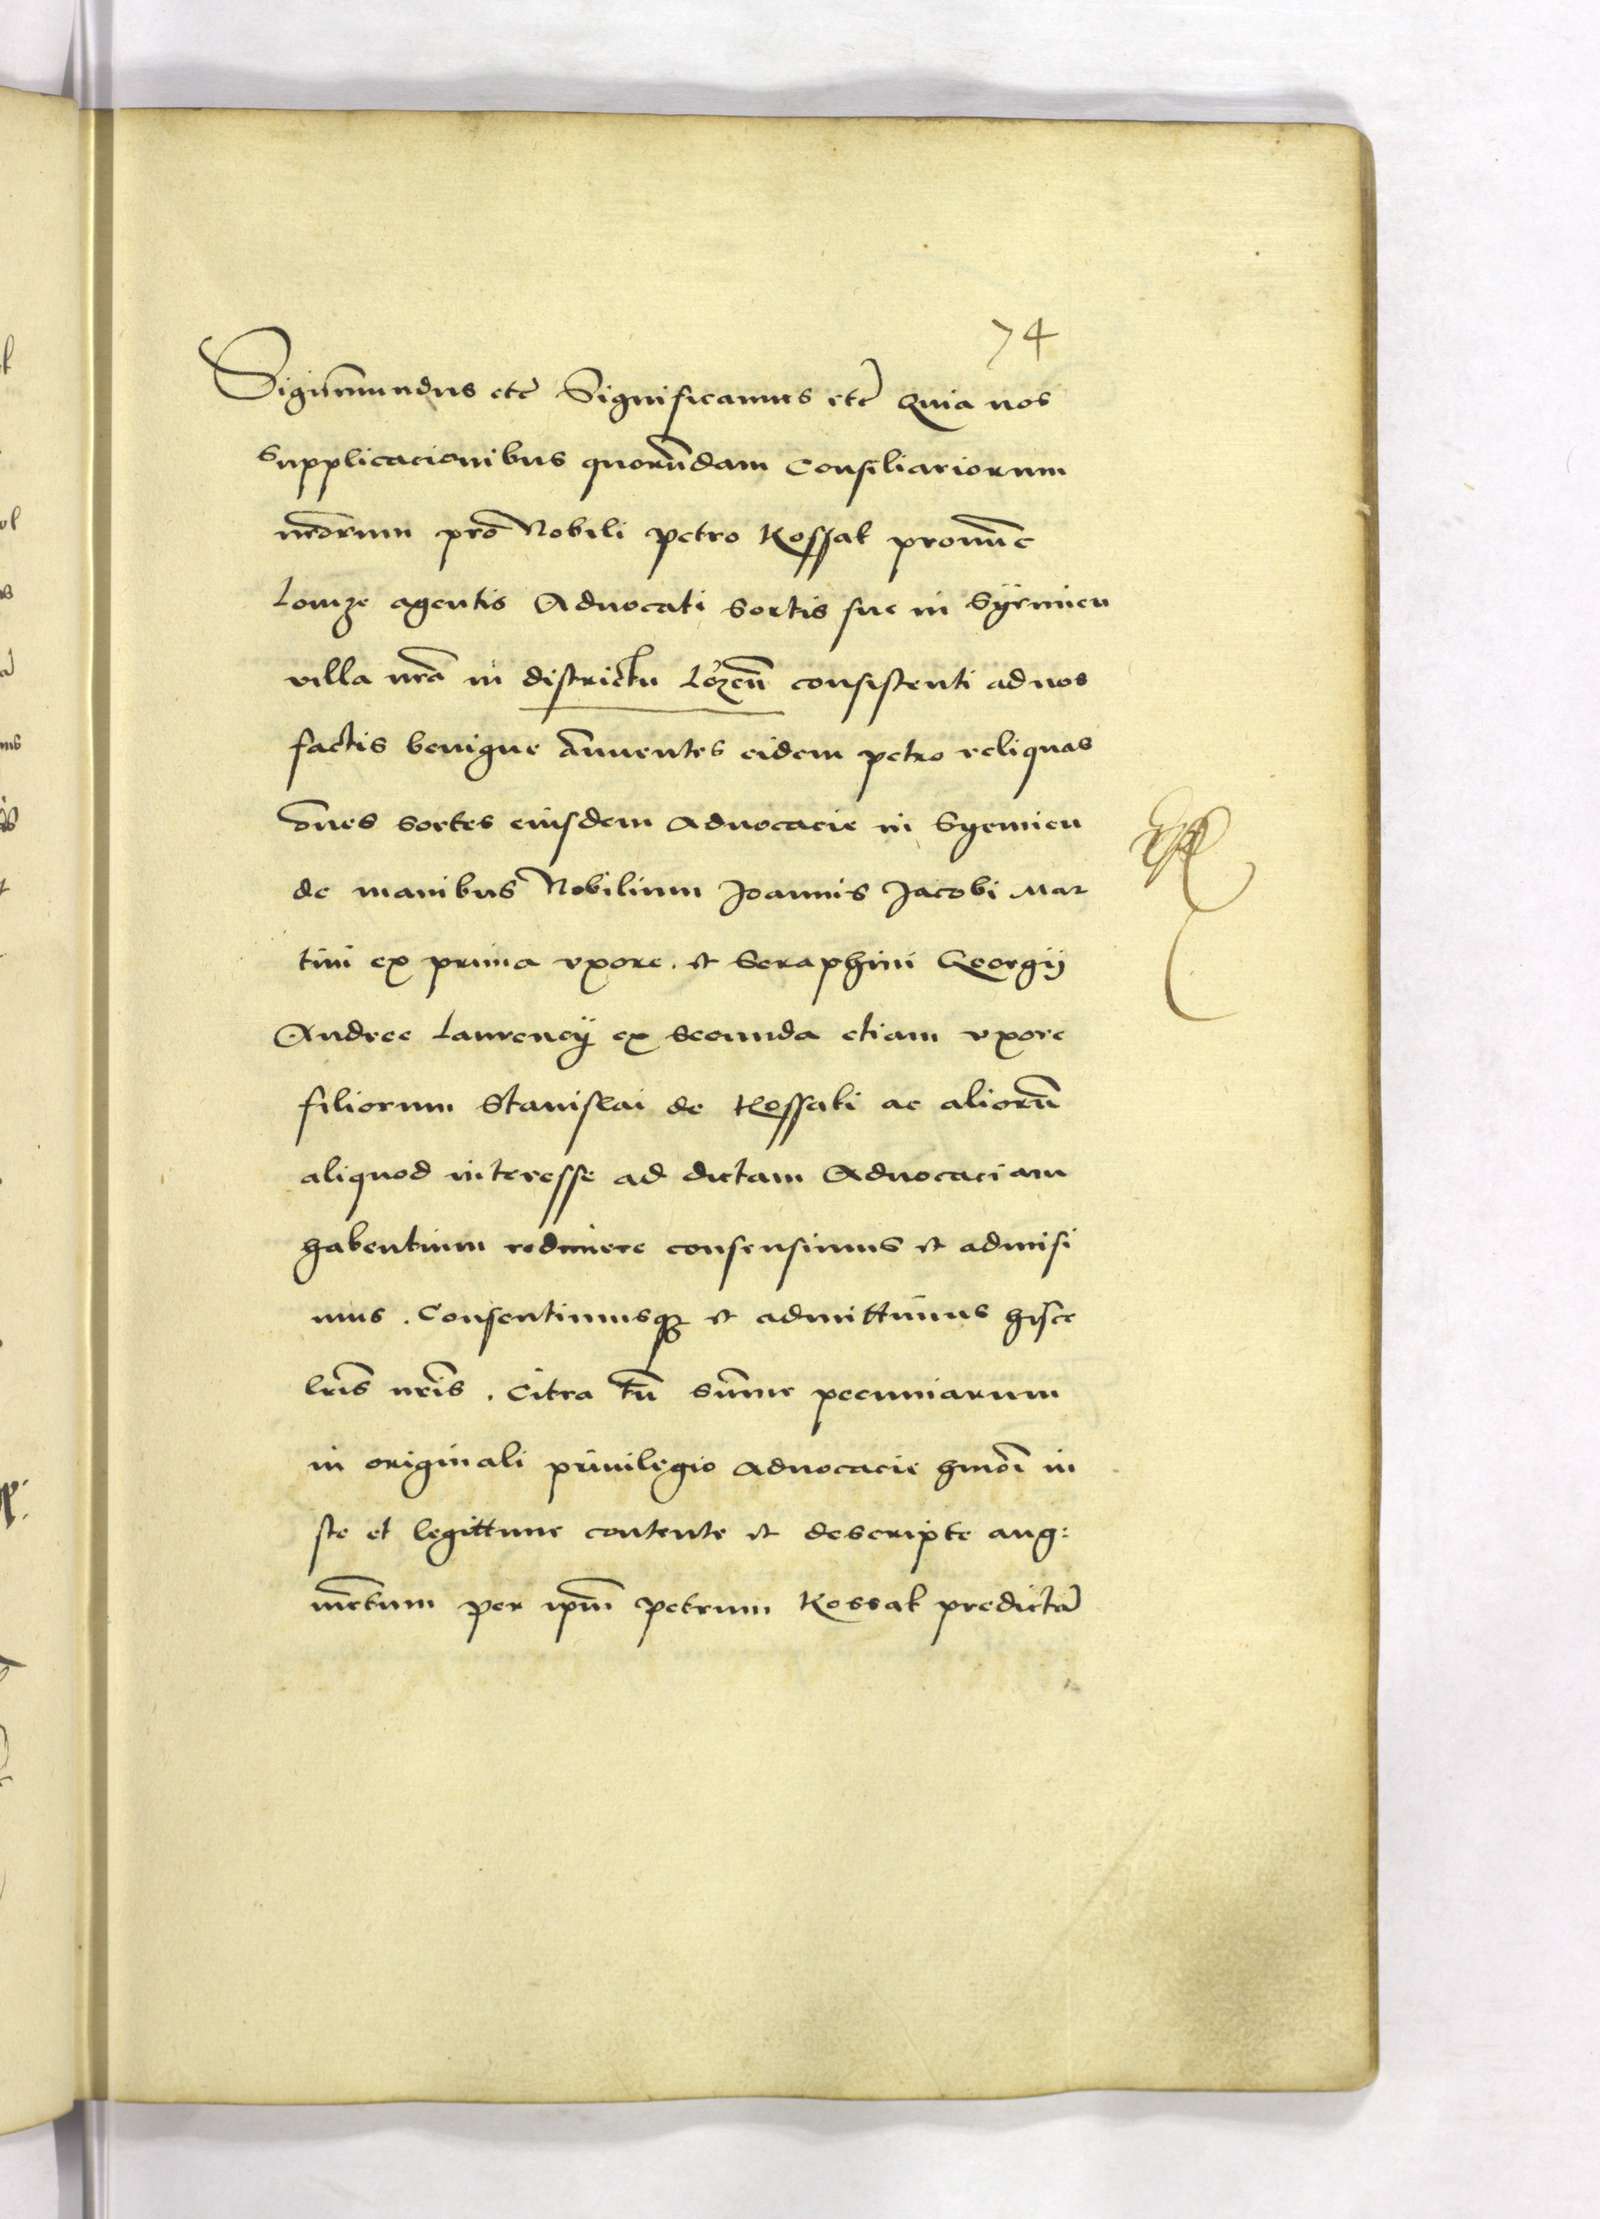 74
Sigismundus etc̃ Significamus etc̃ Quia nos
supplicacionibus quorũdam Consiliariorum
nr̃orum pro Nobili petro Kossak pronũc
Lomze agentis Aduocati sortis sue in Syemien
villa nrã in districtu Lozeñ consistenti ad nos
factis benigne ãnuentes eidem petro reliquas
oẽs sortes eiusdem Aduocacie in Syemien
de manibus Nobilium Joannis Jacobi Mar
tini ex prima vxore. et Seraphini Georgij
Andree Laurencij ex secunda etiam vxore
filiorum Stanislai de Kossaki ac aliorũ
aliquod interesse ad dictam Aduocaciam
habentium redimere consensimus et admisi
mus. Consentimusq3 et admittimus hisce
lrĩs nrĩs. Citra tñ sũme pecuniarum
in originali priuilegio Aduocacie hmõi iu
ste et legittime contente et descripte aug:
mẽtum per ipm̃ petrum Kossak predictã